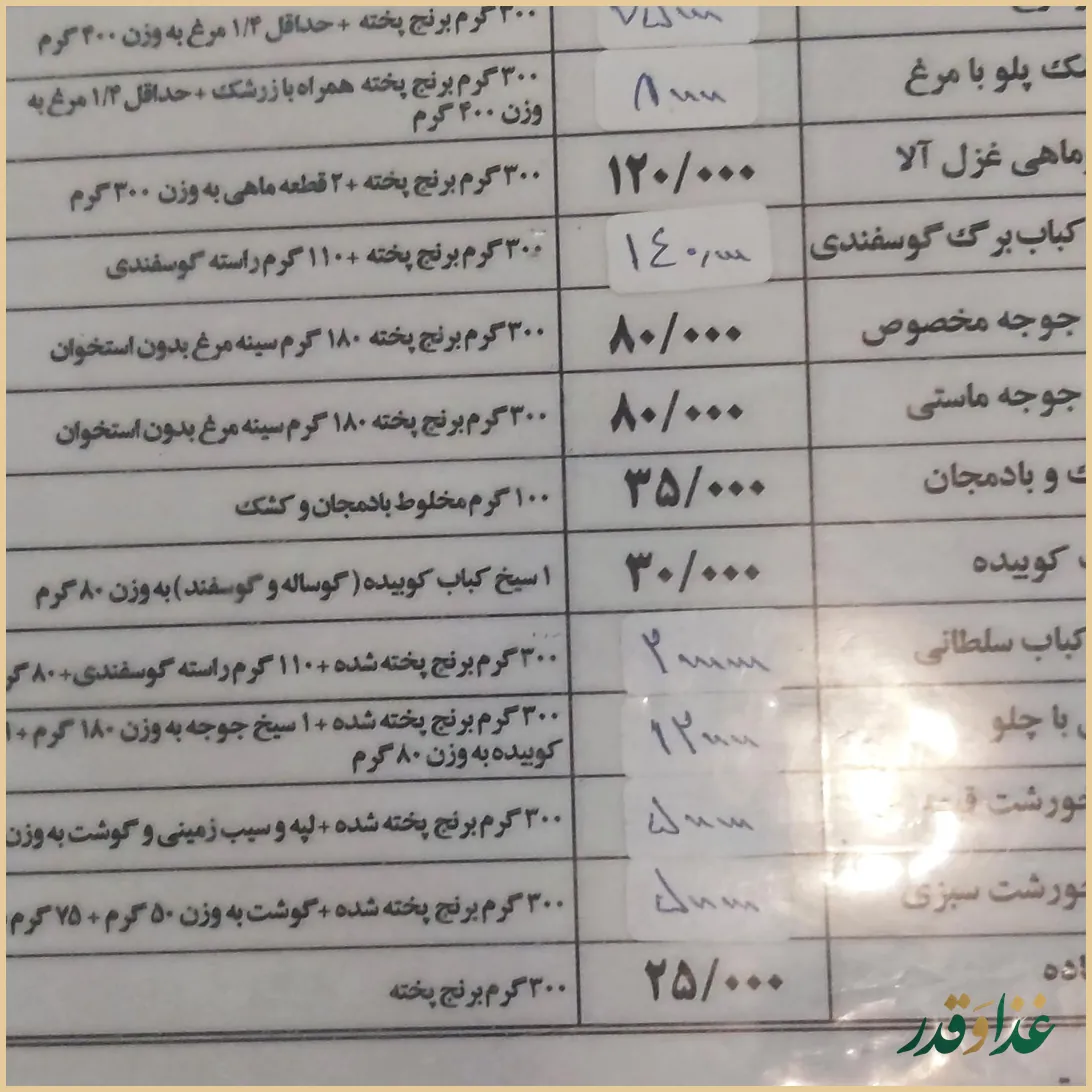 ۳۰۰ گرم برنج پخته + حداقل ۱/۴ مرغ به وزن ۴۰۰ گرم
شک پلو با مرغ ۸۰۰۰۰ ۳۰۰ گرم برنج پخته همراه با زرشک + حداقل ۱/۴ مرغ به
وزن ۴۰۰ گرم
ماهی غزل آلا ۱۲۰/۰۰۰ ۳۰۰ گرم برنج پخته +۲ قطعه ماهی به وزن ۳۰۰ گرم
کباب برگ گوسفندی ۱٤۰/۰۰۰ ۳۰۰ گرم برنج پخته +۱۱۰ گرم راسته گوسفندی
جوجه مخصوص ۸۰/۰۰۰ ۳۰۰ گرم برنج پخته ۱۸۰ گرم سینه مرغ بدون استخوان
جوجه ماستی ۸۰/۰۰۰ ۳۰۰ گرم برنج پخته ۱۸۰ گرم سینه مرغ بدون استخوان
ک و بادمجان ۳۵/۰۰۰ ۱۰۰ گرم مخلوط بادمجان و کشک
کوبیده ۳۰/۰۰۰ ۱ سیخ کباب کوبیده ( گوساله و گوسفند ) به وزن ۸۰ گرم
کباب سلطانی ۳۰۰ گرم برنج پخته شده +۱۱۰ گرم راسته گوسفندی+۸۰ گر
با چلو ۳۰۰ گرم برنج پخته شده +۱ سیخ جوجه به وزن ۱۸۰ گرم +۱
کوبیده به وزن ۸۰ گرم
خورشت ۳۰۰ گرم برنج پخته شده +لپه و سیب زمینی و گوشت به وزن
خورشت سبزی ۳۰۰ گرم برنج پخته شده +گوشت به وزن ۵۰ گرم + ۷۵ گرم
اده ۲۵/۰۰۰ ۳۰۰ گرم برنج پخته
غذا و قدر